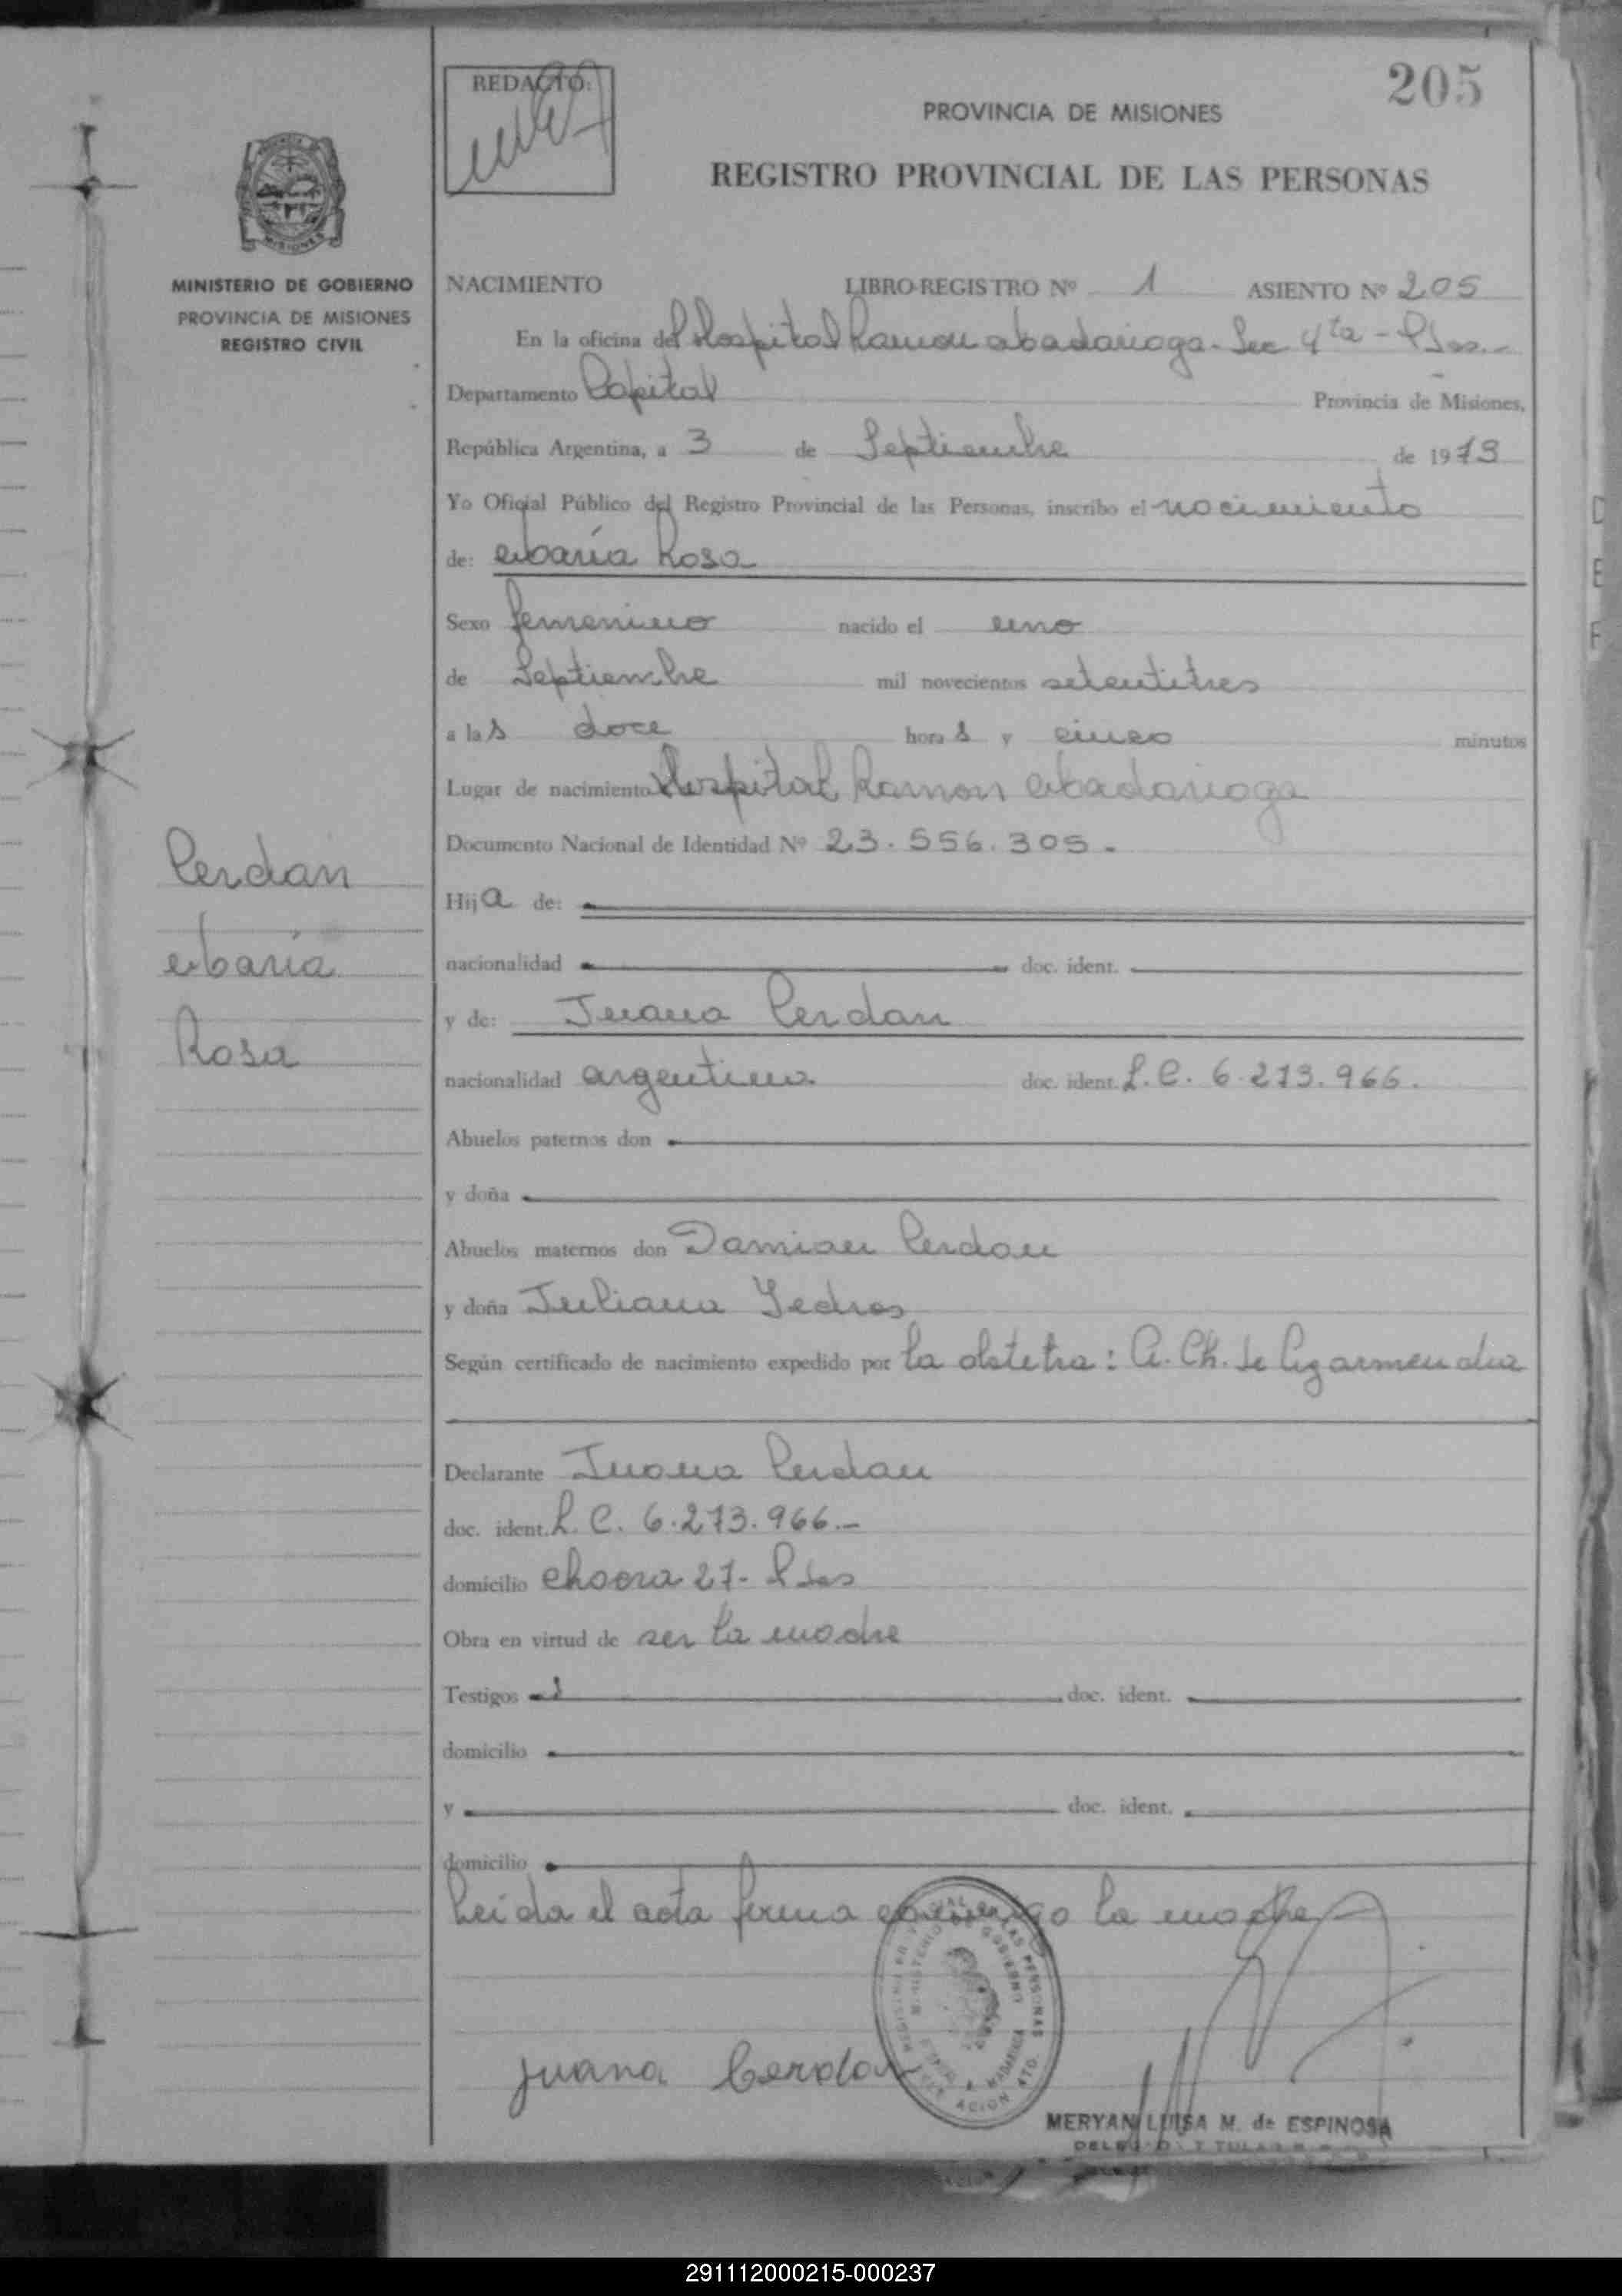 205
REDACTO:
PROVINCIA DE MISIONES
REGISTRO PROVINCIAL DE LAS PERSONAS
MISIONES
MINISTERIO DE GOBIERNO
PROVINCIA DE MISIONES
REGISTRO CIVIL
NACIMIENTO LIBRO-REGISTRO Nº 1 ASIENTO Nº 205
En la oficina del Hospital Ramon Madariaga - Sec 4ta - Pdas.-
Departamento Capital Provincia de Misiones,
República Argentina, a 3 de Septiembre de 1973
Yo Oficial Público del Registro Provincial de las Personas, inscribo el nacimiento
de: María Rosa
Sexo femenino nacido el uno
de Septiembre mil novecientos setentitres
a las doce horas y cinco minutos
Lugar de nacimiento Hospital Ramon Madariaga
Documento Nacional de Identidad Nº 23.556.305.
Hija de:
nacionalidad doc. ident.
y de: Juana Cerdan
nacionalidad argentina doc. ident. L.C. 6.273.966.
Abuelos paternos don
y doña
Abuelos maternos don Damian Cerdan
y doña Juliana
Según certificado de nacimiento expedido por la obstetra: A. Ch. de
Declarante Juana Cerdan
doc. ident. L.C. 6.273.966.-
domicilio chacra 27- Pdas
Obra en virtud de ser la madre
Testigos doc. ident.
domicilio
y doc. ident.
domicilio
Leida el acta firma conmigo la madre
Juana Cerdan
MERYAN LUISA M. de ESPINOSA
Cerdan
María
Rosa
291112000215-000237